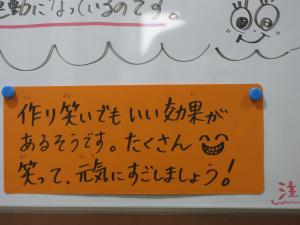 運動になっているのです。
作り笑いでもいい効果が
あるそうです。たくさん
笑って、元気にすごしましょう!
注